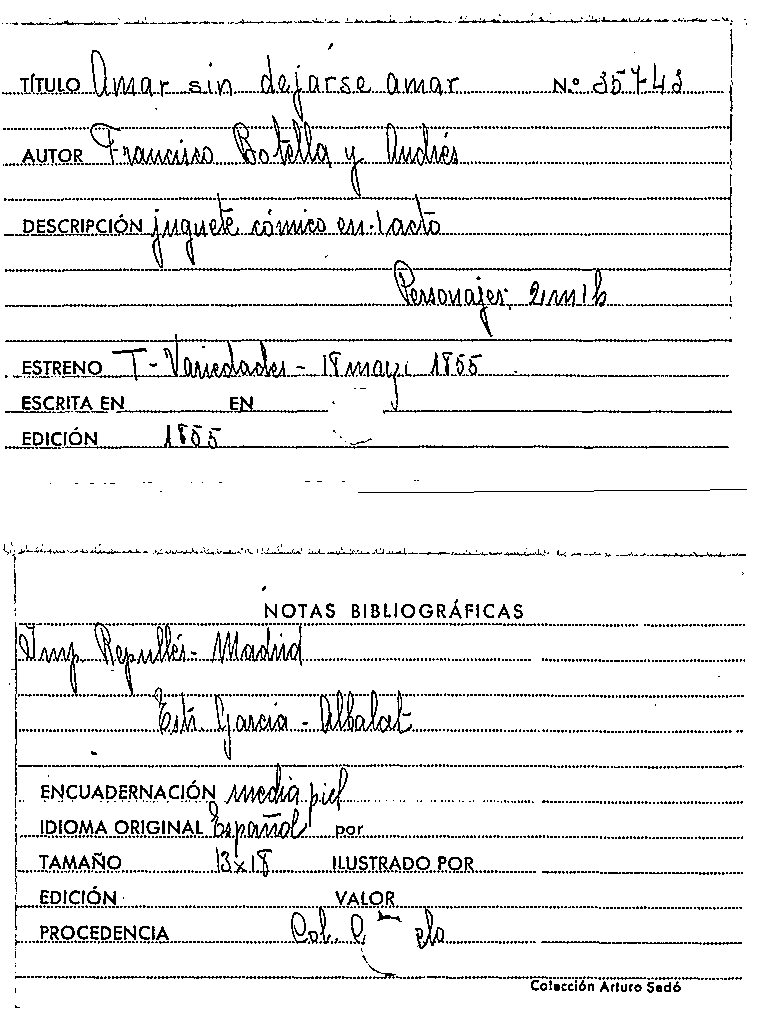 TÍTULO Amar sin dejarse amar N.º 35743
AUTOR Francisco Botella y Andrés
DESCRIPCIÓN juguete cómico en 1 acto
Personajes; 2 m 1 h
ESTRENO T- Variedades - 18 mayo 1855
ESCRITA EN EN
EDICIÓN 1855
NOTAS BIBLIOGRÁFICAS
Imp Repullés - Madrid
García - Albalat
ENCUADERNACIÓN media piel
IDIOMA ORIGINAL Español por
TAMAÑO 13x18 ILUSTRADO POR
EDICIÓN VALOR
PROCEDENCIA Col.
Colección Arturo Sedó